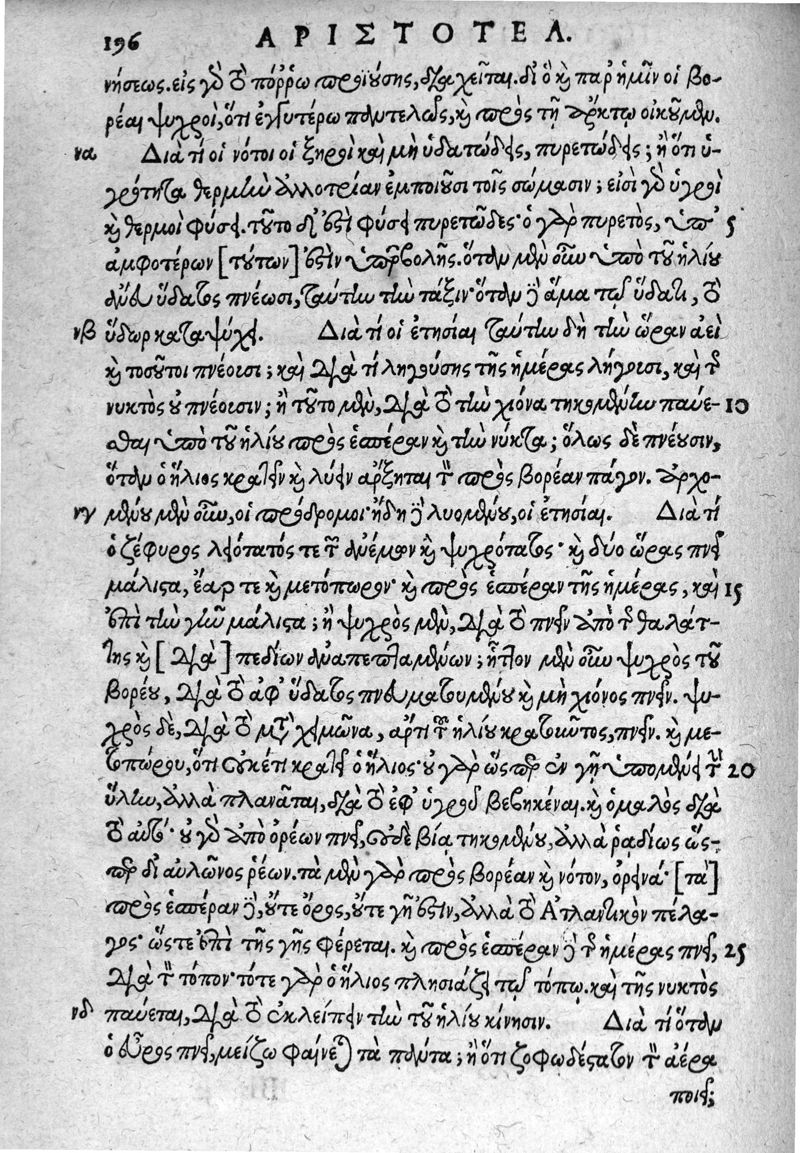 196 ΑΡΙΣΤΟΤΕΛ.
νήσεως. εἰς γὸ τὸ πόῤῥω προϊούσης, διαχεῖται. διὸ καὶ παρ' ἡμῖν οἱ βο-
ρέαι ψυχροὶ, ὅτι ἐγγυτέρω πολυτελῶς, καὶ πρὸς τῇ ἄρκτῳ οἰκοῦμεν.
να Διὰ τί οἱ νότοι οἱ ξηροὶ καὶ μὴ ὑδατώδεις, πυρετώδεις; ἢ ὅτι ὑ-
γρότητα θερμὴν ἀλλοτρίαν ἐμποιοῦσι τοῖς σώμασιν; εἰσὶ γὸ ὑγροὶ
καὶ θερμοὶ φύσει. τοῦτο δ' ἐστὶ φύσει πυρετῶδες· ὁ γὰρ πυρετὸς, ὑπ' 5
ἀμφοτέρων [τούτων] ἐστὶν ὑπερβολῆς. ὅταν μὲν οὖν ὑπὸ τοῦ ἡλίου
ἄνευ ὕδατος πνέωσι, ταύτην τὴν τάξιν· ὅταν δὲ ἅμα τῷ ὕδατι, τὸ
νβ ὕδωρ καταψύχει. Διὰ τί οἱ ἐτησίαι ταύτην δὴ τὴν ὥραν ἀεὶ
καὶ τοσοῦτοι πνέουσι; καὶ διὰ τί ληγούσης τῆς ἡμέρας λήγουσι, καὶ τῆς
νυκτὸς οὐ πνέουσιν; ἢ τοῦτο μὲν, διὰ τὸ τὴν χιόνα τηκομένην παύε- 10
σθαι ὑπὸ τοῦ ἡλίου πρὸς ἑσπέραν καὶ τὴν νύκτα; ὅλως δὲ πνέουσιν,
ὅταν ὁ ἥλιος κρατεῖν καὶ λύειν ἄρξηται τὸν πρὸς βορέαν πάγον. ἀρχο-
νγ μένου μὲν οὖν, οἱ πρόδρομοι· ἤδη δὲ λυομένου, οἱ ἐτησίαι. Διὰ τί
ὁ ζέφυρος λειότατός τε τῶν ἀνέμων καὶ ψυχρότατος· καὶ δύο ὥρας πνεῖ
μάλιστα, ἔαρ τε καὶ μετόπωρον· καὶ πρὸς ἑσπέραν τῆς ἡμέρας, καὶ 15
ἐπὶ τὴν γῆν μάλιστα; ἢ ψυχρὸς μὲν, διὰ τὸ πνεῖν ἀπὸ τῆς θαλάτ-
της καὶ [διὰ] πεδίων ἀναπεπταμένων; ἧττον μὲν οὖν ψυχρὸς τοῦ
βορέου, διὰ τὸ ἀφ' ὕδατος πνευματουμένου καὶ μὴ χιόνος πνεῖν. ψυ-
χρὸς δὲ, διὰ τὸ μετὰ χειμῶνα, ἄρτι τοῦ ἡλίου κρατοῦντος, πνεῖν. καὶ με-
τοπώρου, ὅτι οὐκέτι κρατεῖ ὁ ἥλιος· οὐ γὰρ ὥσπερ ἐν γῇ ὑπομένει τὴν 20
ὕλην, ἀλλὰ πλανᾶται, διὰ τὸ ἐφ' ὑγροῦ βεβηκέναι. καὶ ὁμαλὸς διὰ
τὸ αὐτό· οὐ γὸ ἀπὸ ὀρέων πνεῖ, οὐδὲ βίᾳ τηκομένου, ἀλλὰ ῥᾳδίως ὥς-
περ δι' αὐλῶνος ῥέων. τὰ μὲν γὰρ πρὸς βορέαν καὶ νότον, ὀρεινά· [τὰ]
πρὸς ἑσπέραν δὲ, οὔτε ὄρος, οὔτε γῆ ἐστὶν, ἀλλὰ τὸ Ἀτλαντικὸν πέλα-
γος· ὥστε ἐπὶ τῆς γῆς φέρεται. καὶ πρὸς ἑσπέραν δὲ τῆς ἡμέρας πνεῖ, 25
διὰ τὸν τόπον· τότε γὰρ ὁ ἥλιος πλησιάζει τῷ τόπῳ. καὶ τῆς νυκτὸς
νδ παύεται, διὰ τὸ ἐκλείπειν τὴν τοῦ ἡλίου κίνησιν. Διὰ τί ὅταν
ὁ εὖρος πνεῖ, μείζω φαίνεται τὰ πολύτα; ἢ ὅτι ζοφωδέστατον τὸν ἀέρα
ποιεῖ;